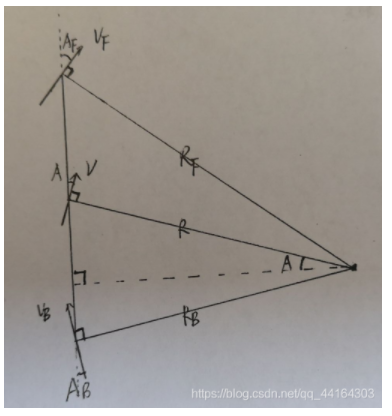 AF VF
RF
A V
R
A
VB
RB
AB
https://blog.csdn.net/qq_44164303